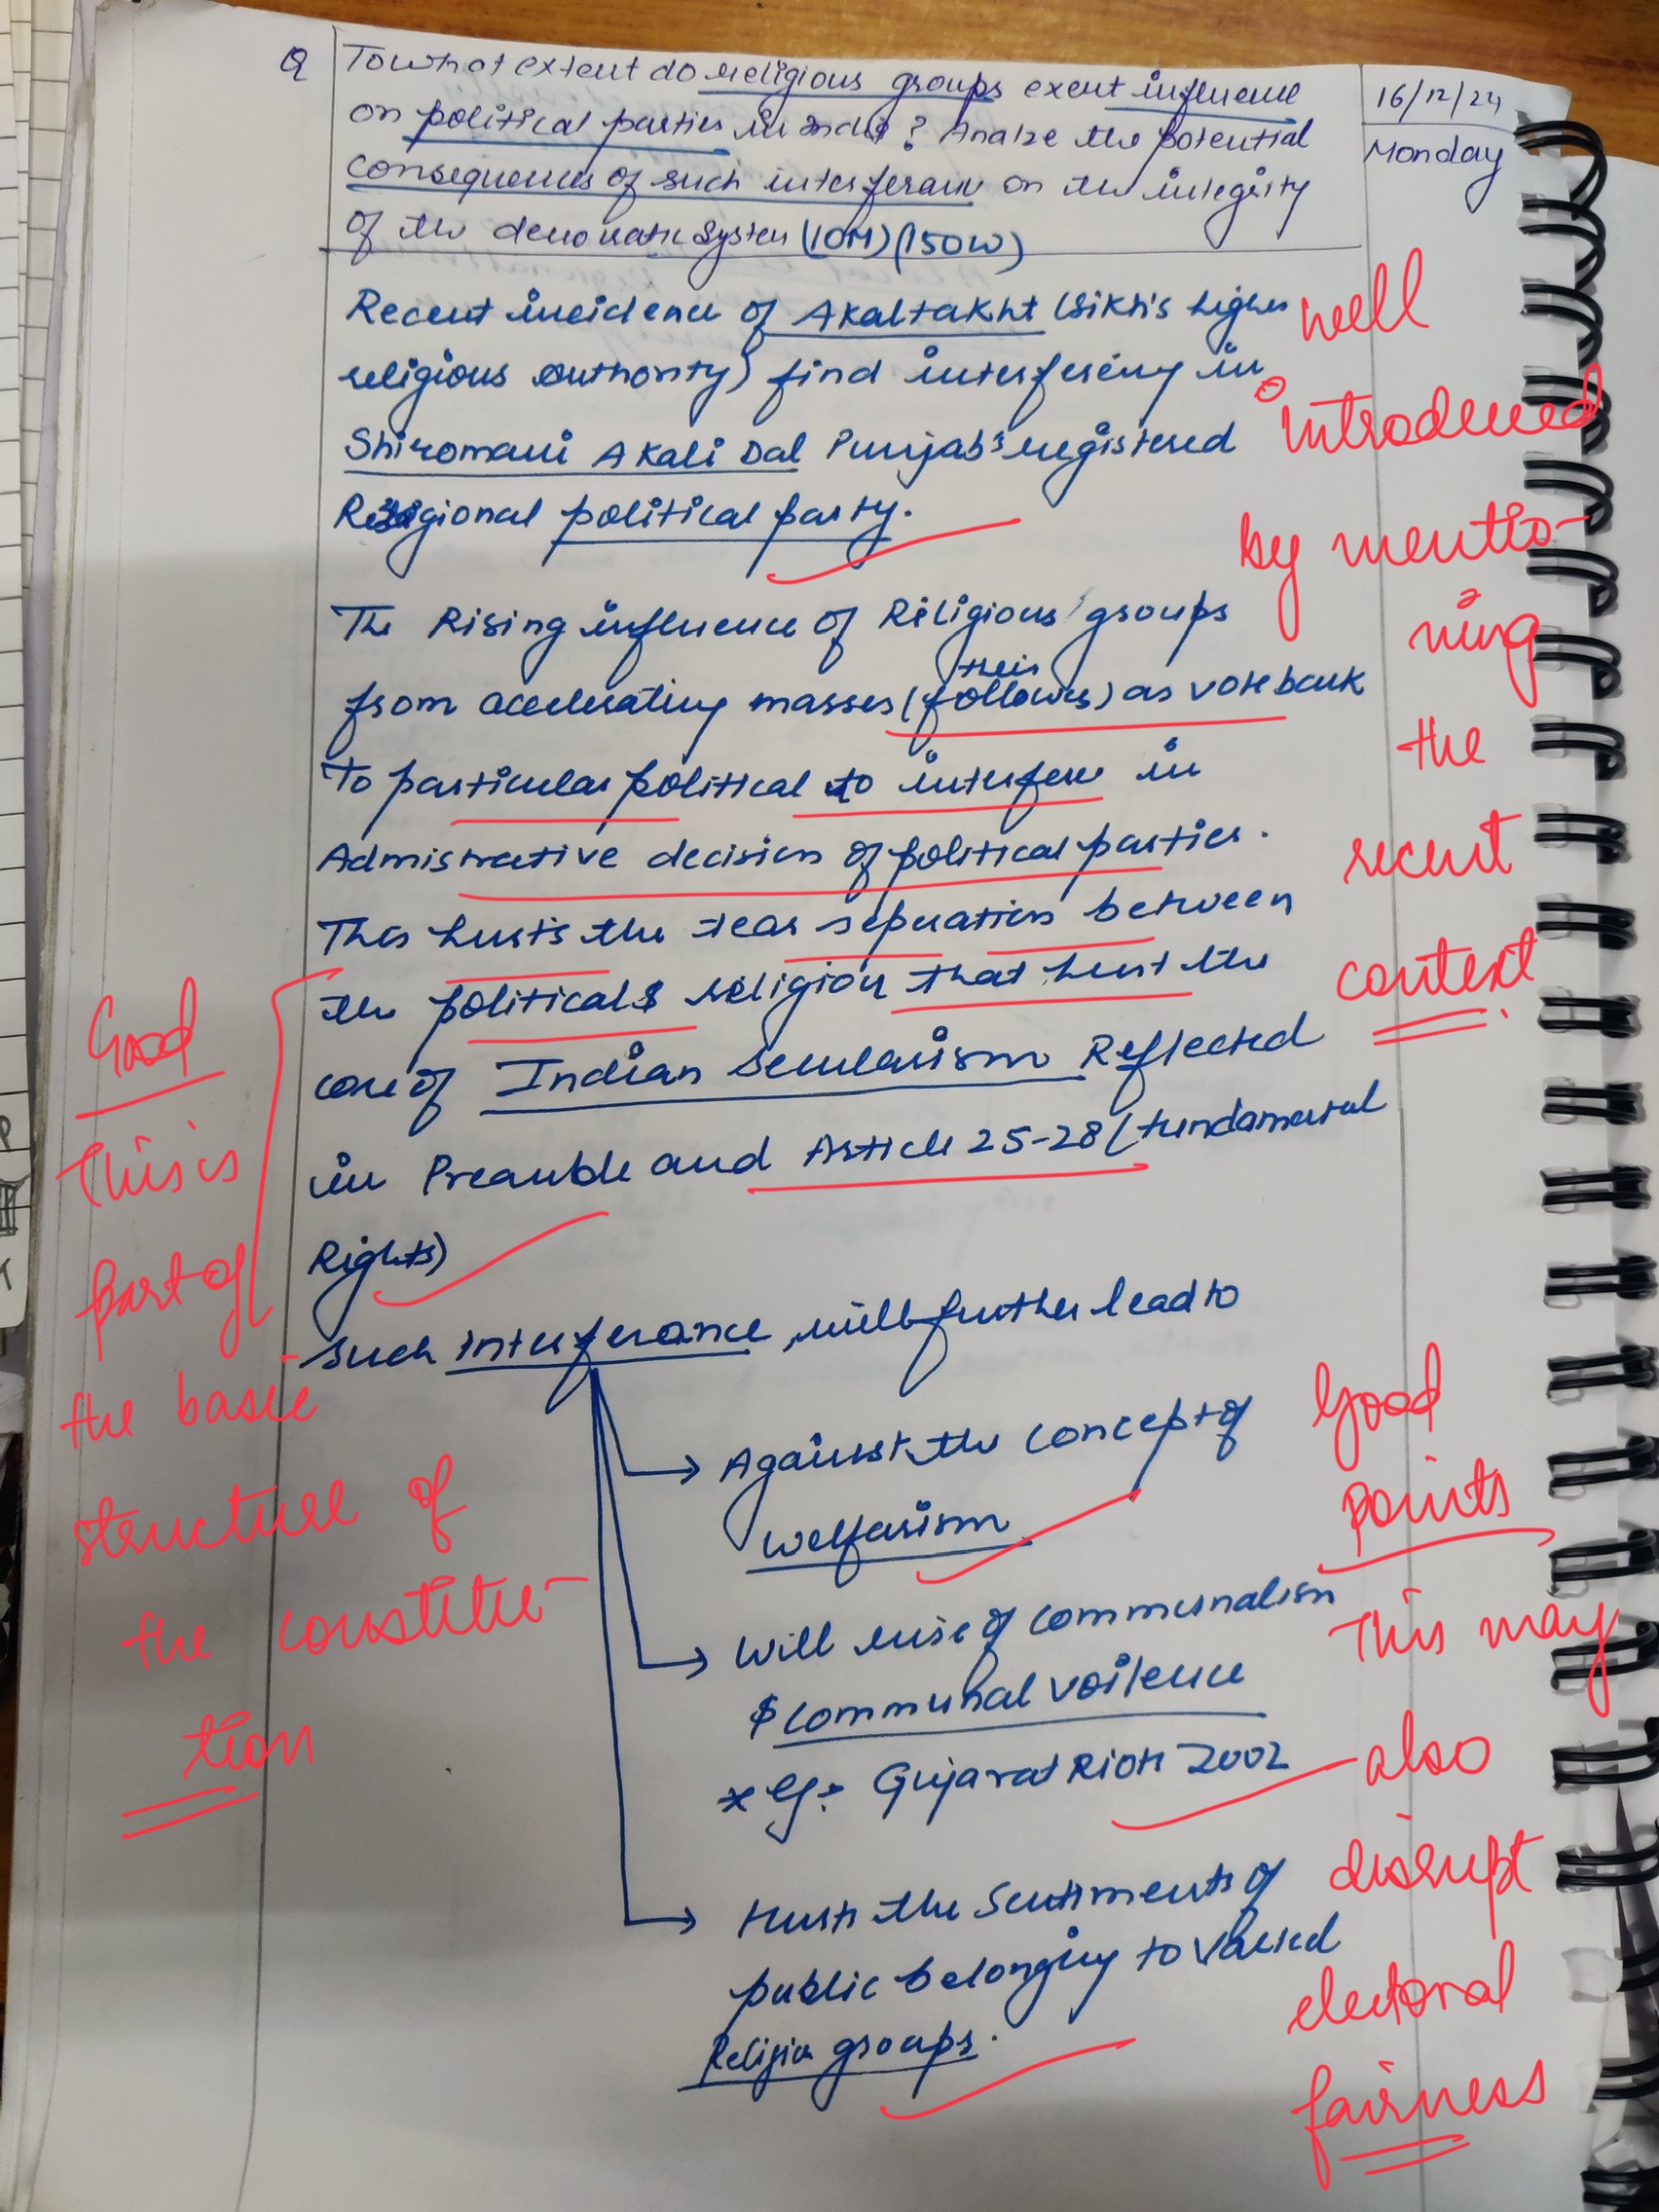 Q
To what extent do religious groups exert influence
on political parties in India? Analze the potential
consequences of such interferance on the integrity
of the democratic system (10M) (150W)
16/12/24
Monday
Recent incidence of Akaltakht (Sikh's higher
religious authority) find interfering in
Shiromani Akali Dal Punjab's registered
Regional political party.
well
introduced
by mentio-
ning
the
recent
context
The Rising influence of Religious groups
from accelerating masses (their followers) as vote bank
To particular political to interfere in
Admistrative decision of political parties.
This hurts the seperation between
the political & religion that hurt the
core of Indian Secularism Reflected
in Preamble and Article 25-28 (fundamental
Rights)
Good
This is
part of
the basic
structure of
the constitu-
tion
Such interferance, will further lead to
→ Against the concept of
welfarism
→ Will rise of communalism
& communal voilence
* eg:- Gujarat Riots 2002
→ Hurts the Sentiments of
public belonging to varied
Religion groups.
Good
Points
This may
also
disrupt
electoral
fairness